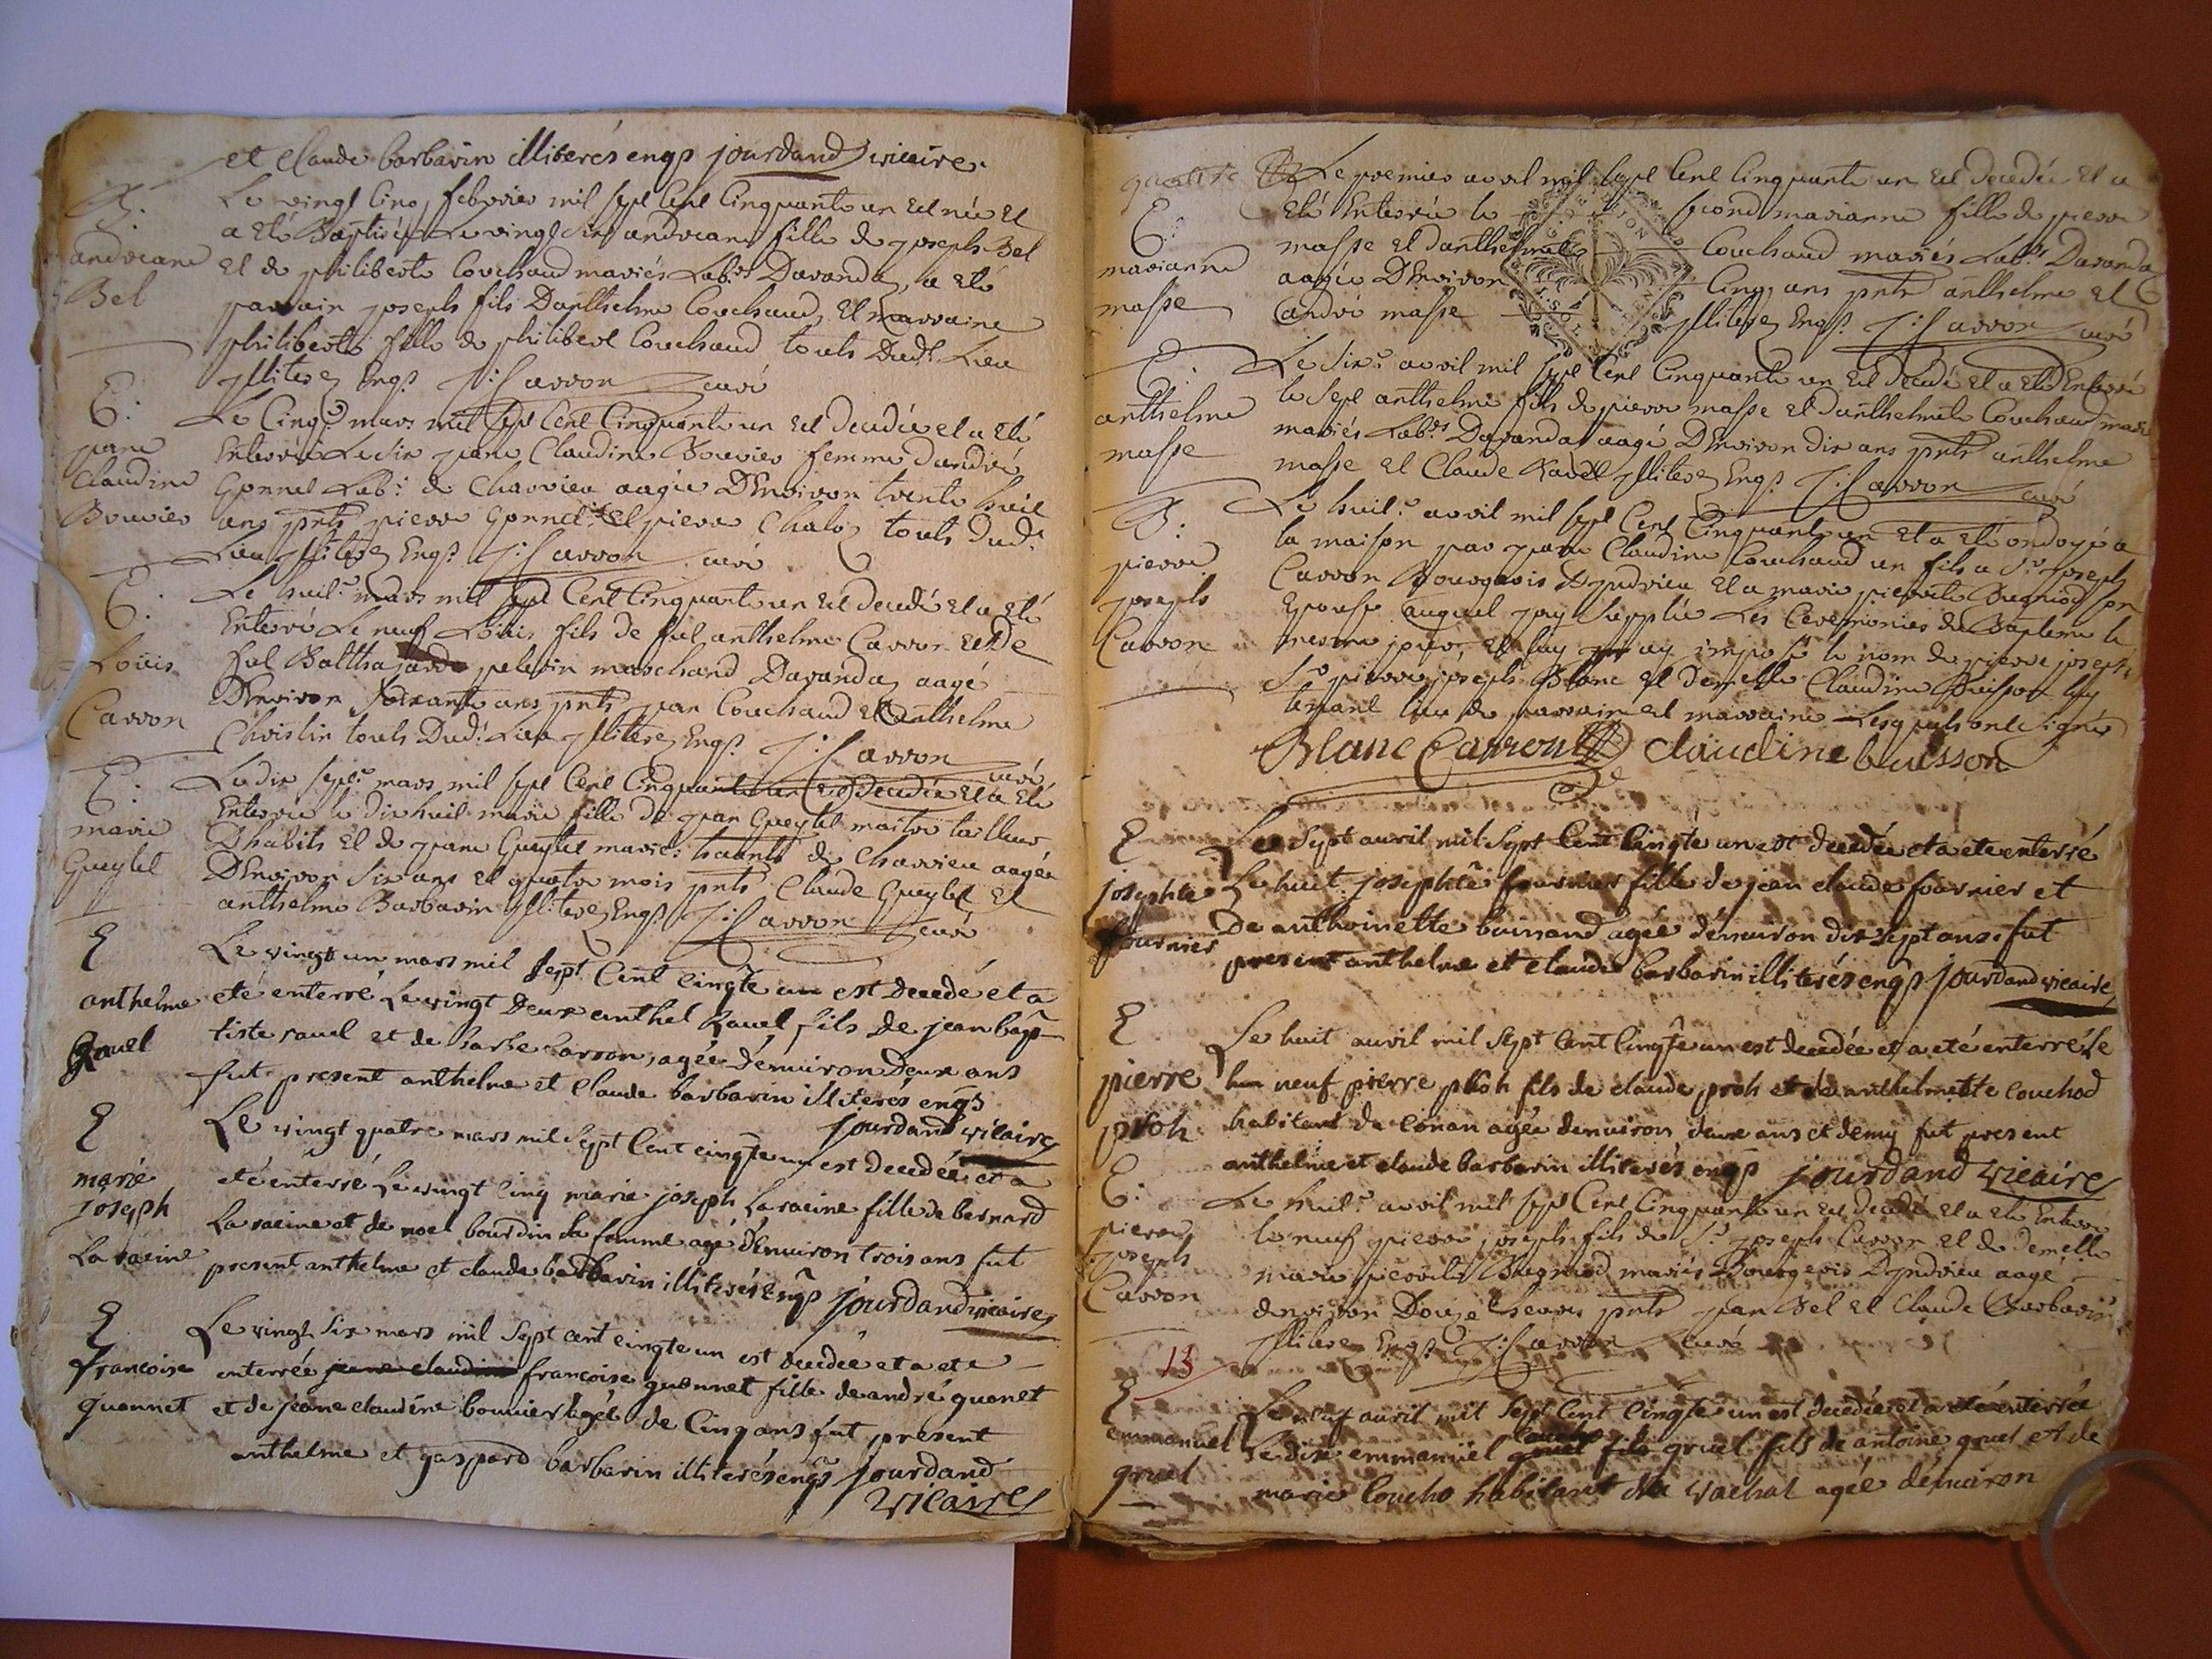 et Claude barbarin illiterés enqs jourdand vicaire.
B.
andreane
Bel
Le vingt cinq febvrier mil sept Cent Cinquante un est née et
a eté Baptisée Le vingt six andreane fille de joseph Bel
et de philiberte Couchaud mariés Labrs Daranda, a eté
parrain joseph fils Danthelme Couchaud, et marraine
philiberte fille de philibert Couchaud touts Dudt Lieu
illiterez Enqs J: Carron curé
E:
jeane
Claudine
Bouvier
Le Cinqe mars mil sept Cent Cinquante un est decedée et a eté
Enterrée Le six jeane Claudine Bouvier femme dandré
Labr de Charvieu aagée DEnviron trente huit
ans pnts pierre et pierre Chaloz touts dudt
Lieu illiterez Enqs J: Carron curé
E:
Loüis
Carron
Le huite mars mil sept Cent Cinquante un est decedé et a eté
Enterré Le neuf Loüis fils de fut anthelme Carron et de
fut Balthazarde pelerin marchand Daranda aagé
DEnviron soixante ans pnts jean Couchaud et anthelme
Christin touts Dudt Lieu illiterez Enqs J: Carron curé
E:
marie
Gueytet
Le dix septe mars mil sept Cent Cinquante un est decedée et a eté
Enterrée le dix huit marie fille de jean Gueytet maitre tailleur
Dhabits et de jeane Gueytet mariés habnts de Charvieu aagée
DEnviron six ans et quatre mois pnts Claude Gueytet et
anthelme Barbarin illiterez Enqs J: Carron curé
E
anthelme
Ravel
Le vingt un mars mil sept Cent Cinqte un est decedé et a
eté enterré Le vingt Deux anthel Ravel fils De jean bap
tiste ravel et de barbe carron, agée d'énuiron Deux ans
fut present anthelme et Claude barbarin illiterés enqs
jourdand vicaire
E
marie
joseph
La racine
Le vingt quatre mars mil sept Cent cinqte un est decedée et a
eté enterré Le vingt cinq marie joseph La racine fille de bernard
La racine et de noel bourdin sa femme agé d'énuiron trois ans fut
present anthelme et claude barbarin illiterés enqs jourdand vicaire
E
francoise
quonnet
Le vingt six mars mil sept cent cinqte un est decedée et a ete
enterrée jeane claudine francoise quonnet fille de andré quonet
et de jeane claudine bouuier agée de Cinq ans fut present
anthelme et gaspard barbarin illiterés enqs jourdand
vicaire
E:
marianne
masse
Le premier avril mil sept Cent Cinquante un est decedée et a
eté Enterrée le second marianne fille de pierre
masse et danthelmette Couchaud mariés Labrs Daranda
aagée DEnviron Cinq ans pnts anthelme et
andré masse illiterez Enqs J: Carron curé
E:
anthelme
masse
Le sixe avril mil sept Cent Cinquante un est decedé et a eté Enterré
le sept anthelme fils de pierre masse et danthelmete Couchaud
mariés Labrs Daranda aagé DEnviron dix ans pnts anthelme
masse et Claude Ravet illiterez Enqs J: Carron curé
B:
pierre
joseph
Carron
Le huite avril mil sept Cent Cinquante un et a eté ondoyé a
la maison par jeane Claudine Couchaud un fils a Sr joseph
Carron Bourgeois Dyndrieu et a marie pierrete Bugniod son
Epouse auquel jay supplée Les Ceremonies du Bapteme le
mesme jour, et luy ay imposé le nom de pierre joseph
Sr pierre joseph Blanc et demelle Claudine Buisson luy
tenant lieu de parrain et marraine Lesquels ont signés
Blanc Carron claudine buisson
E
josephte
fournier
Le sept auril mil sept Cent Cinqte un est decedée et a ete enterré
Le huit josephte fournier fille de jean claude fournier et
De anthoinette buinand agée d'énuiron dix sept ans fut
present anthelme et claude barbarin illiterés enqs jourdand vicaire
E
pierre
proh
Le huit auril mil sept Cent Cinqte un est decedée et a eté enterré Le
neuf pierre proh fils de claude proh et de anthelmette couchod
habitant de Conan agée denuiron deux ans et demy fut present
anthelme et claude barbarin illiterés enqs jourdand vicaire
E:
pierre
joseph
Carron
Le huite avril mil sept Cent Cinquante un est decedé et a eté Enterré
le neuf pierre joseph fils de Sr joseph Carron et de demelle
marie pierrete Bugniod mariés Bourgeois Dyndrieu aagé
denviron Douze heures pnts jean Bel et Claude Barbarin
illiterez Enqs J: Carron curé
13
E
emmanuel
gruel
Le neuf auril mil sept Cent Cinqte un est decedée et a eté enterrée
Le dix emmanuel gruel fils gruel fils de antoine gruel et de
marie Coucho habitant du vachat agée dénuiron